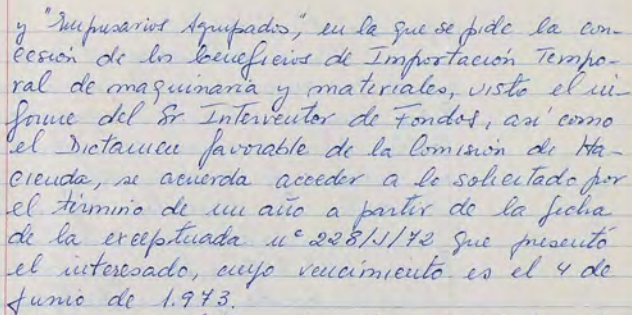 y "Empresarios Agrupados", en la que se pide la con-
cesión de los beneficios de Importación Tempo-
ral de maquinaria y materiales, visto el in-
forme del Sr Interventor de Fondos, así como
el Dictamen favorable de la Comisión de Ha-
cienda, se acuerda acceder a lo solicitado por
el término de un año a partir de la fecha
de la exceptuada nº 228/J/72 que presentó
el interesado, cuyo vencimiento es el 4 de
Junio de 1.973.